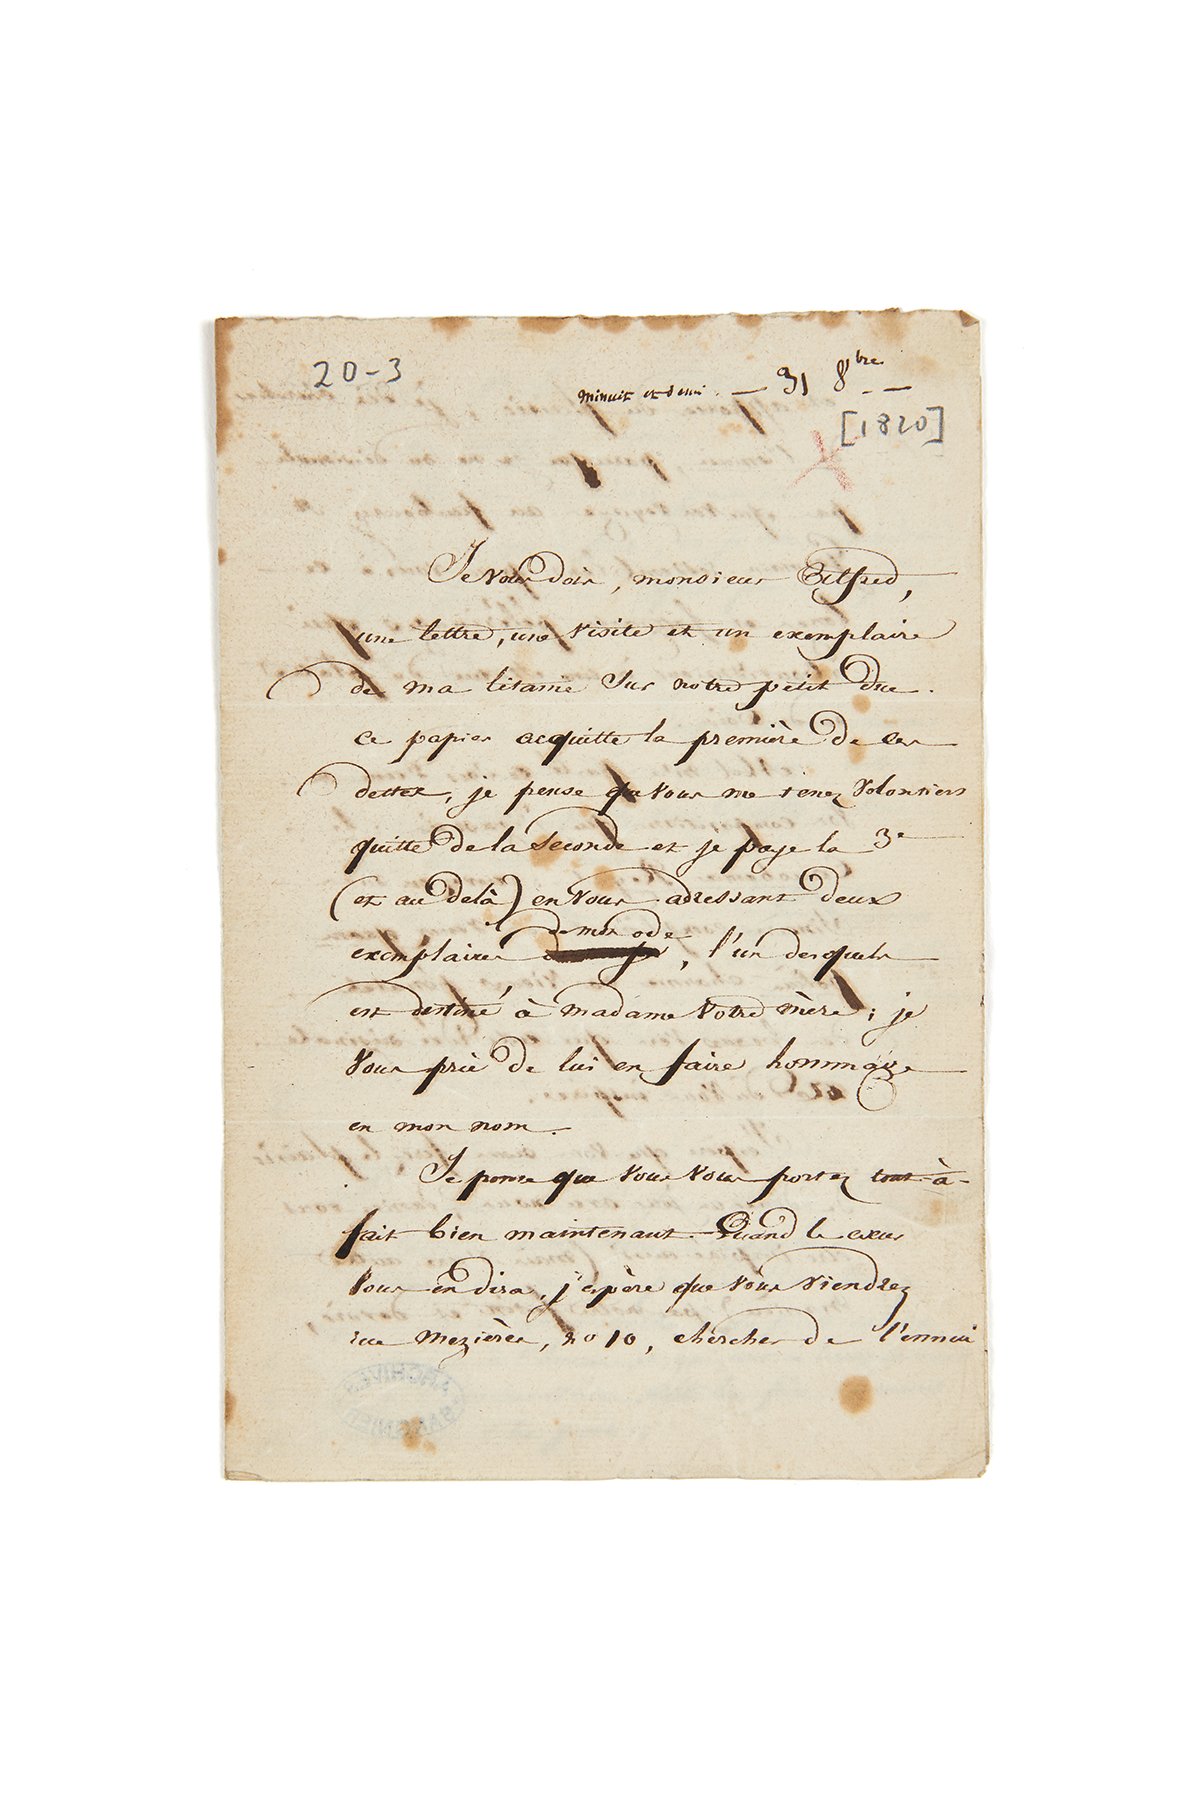 20-3
minuit et demi — 31 8bre —
[1820]
Je vous dois, monsieur Alfred,
une lettre, une visite et un exemplaire
de ma litanie sur notre petit duc.
ce papier acquitte la première de ces
dettes, je pense que vous me tenez volontiers
quitte de la seconde et je paye la 3e
(et au delà) en vous adressant deux
de mon ode
exemplaires , l'un desquels
est destiné à madame votre mère ; je
vous prie de lui en faire hommage
en mon nom.
Je pense que vous vous portez tout-à-
fait bien maintenant. Quand le cœur
vous en dira, j'espère que vous viendrez
rue Mezières, no 10, chercher de l'ennui
ARCHIVES